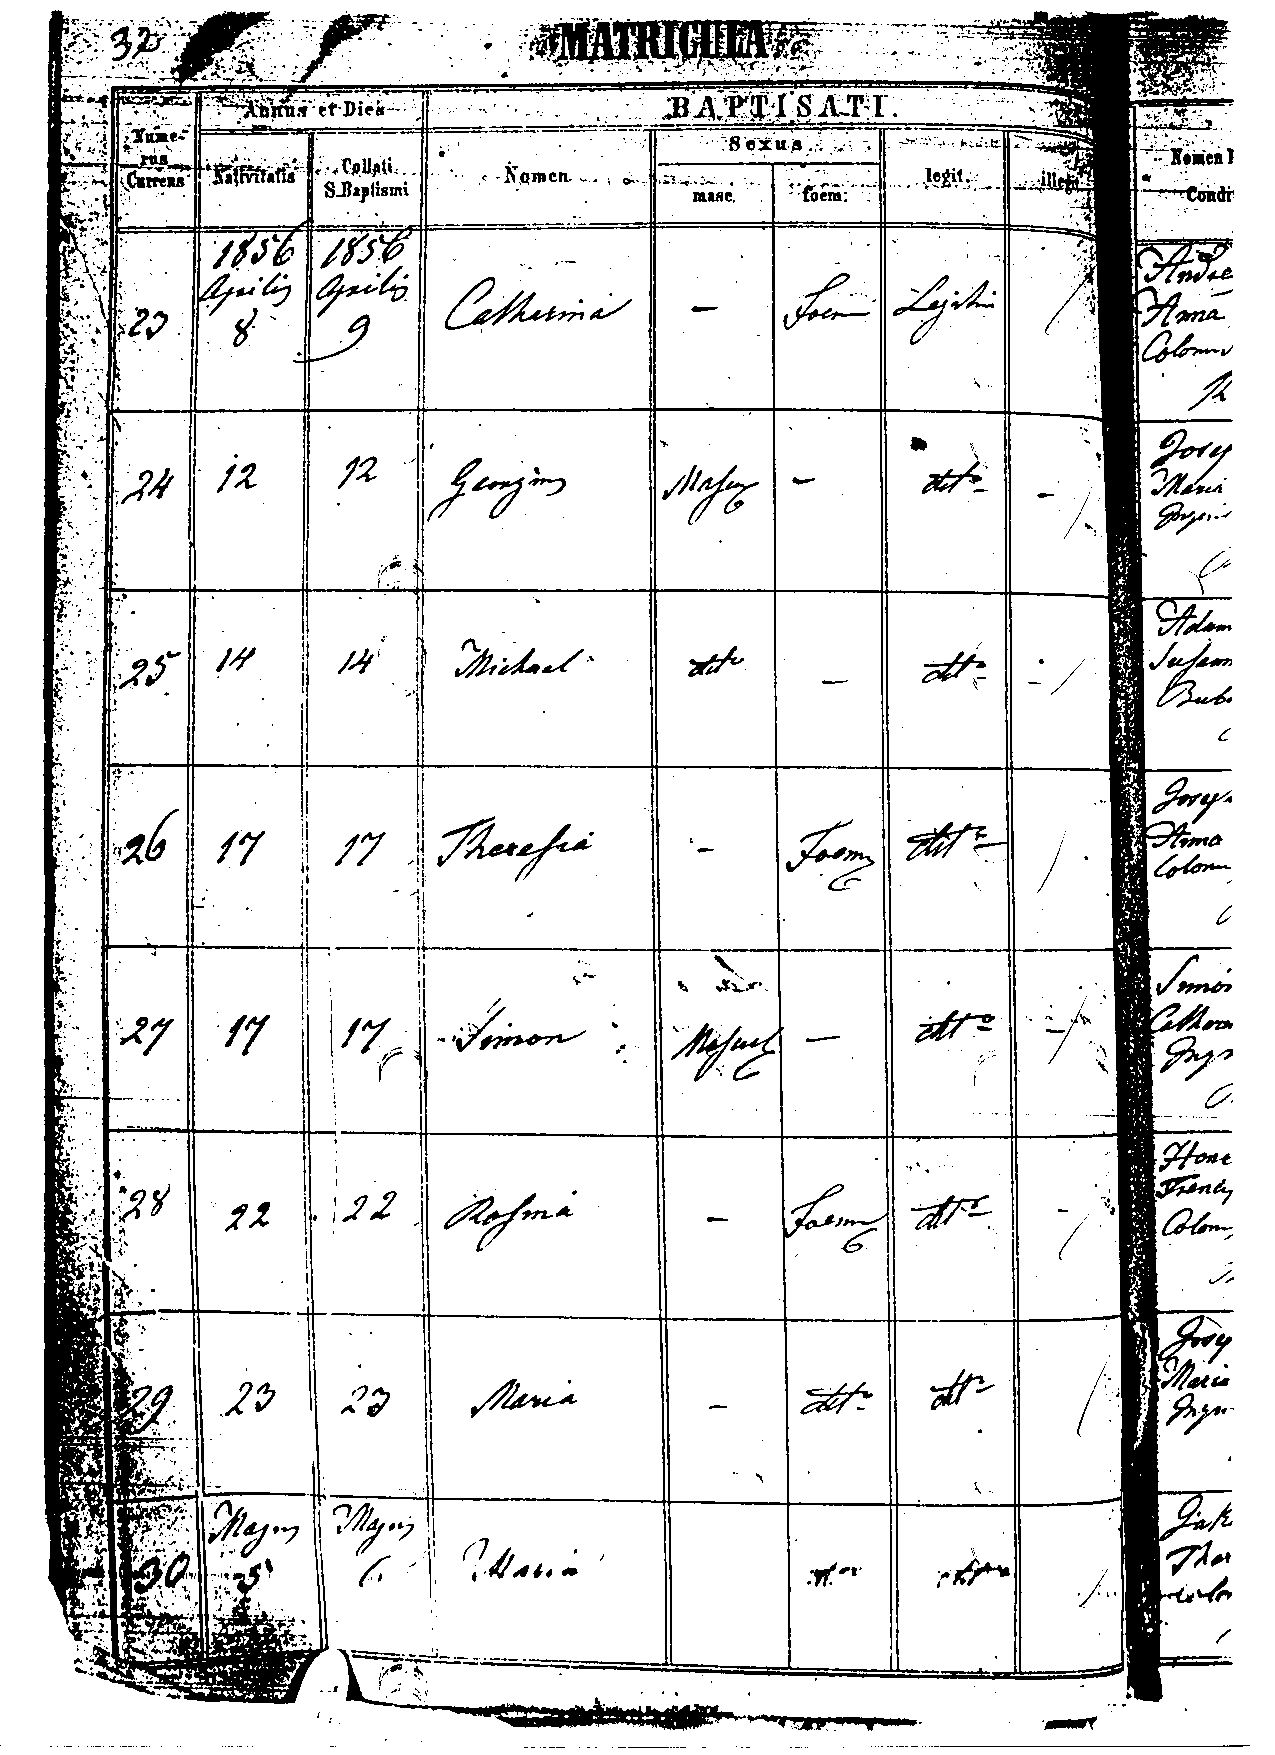 32
MATRICULA
Numerus Currens
Annus et Dies
Nativitatis
Collati S. Baptismi
BAPTISATI.
Nomen
Sexus
masc.
foem:
legit.
illegit
Nomen
Condi
23 1856 Aprilis 8 1856 Aprilis 9 Catharina – Foem Legitim
Anna
24 12 12 Georgius Mascu – ditto –
Maria
25 14 14 Michael ditto – ditto –
Adam
Susann
26 17 17 Theresia – Foem ditto
Anna
Colonu
27 17 17 Simon Mascul – ditto –
Simon
28 22 22 Rosina – Foem ditto –
Colon
29 23 23 Maria – ditto ditto
Maria
30 Majus 5 Majus 6 Maria